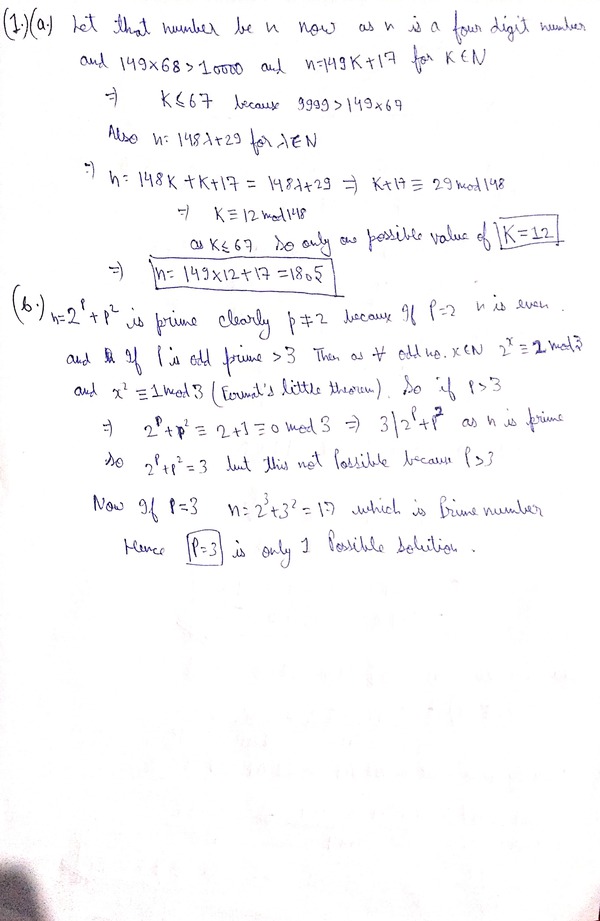 (1.)(a.) Let that number be n now as n is a four digit number
and 149×68>10000 and n=149K+17 for K∈N
⇒ K≤67 because 9999>149×67
Also n=148λ+29 for λ∈N
⇒ n=148K+K+17=148λ+29 ⇒ K+17≡29 mod 148
⇒ K≡12 mod 148
as K≤67. So only one possible value of K=12
⇒ n=149×12+17=1805
(b.) n=2^p+p^2 is prime clearly p≠2 because If P=2 n is even.
and If P is odd prime >3 Then as ∀ odd no. x∈N 2^x≡2 mod 3
and x^2≡1 mod 3 (Fermat's little theorem). So if P>3
⇒ 2^p+p^2≡2+1≡0 mod 3 ⇒ 3|2^p+p^2 as n is prime
So 2^p+p^2=3 but this not Possible because P>3
Now If P=3 n=2^3+3^2=17 which is Prime number
Hence P=3 is only 1 Possible Solution.